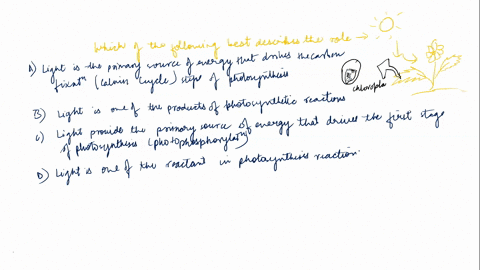 Which of the following best describes the role
A) Light is the primary source of energy that drives the carbon
fixatn (Calvin Cycle) steps of photosynthesis
chloropla
B) Light is one of the products of photosynthetic reactions
C) Light provide the primary source of energy that drives the first stage
of photosynthesis (photophosphorylatn)
D) Light is one of the reactant in photosynthesis reaction.